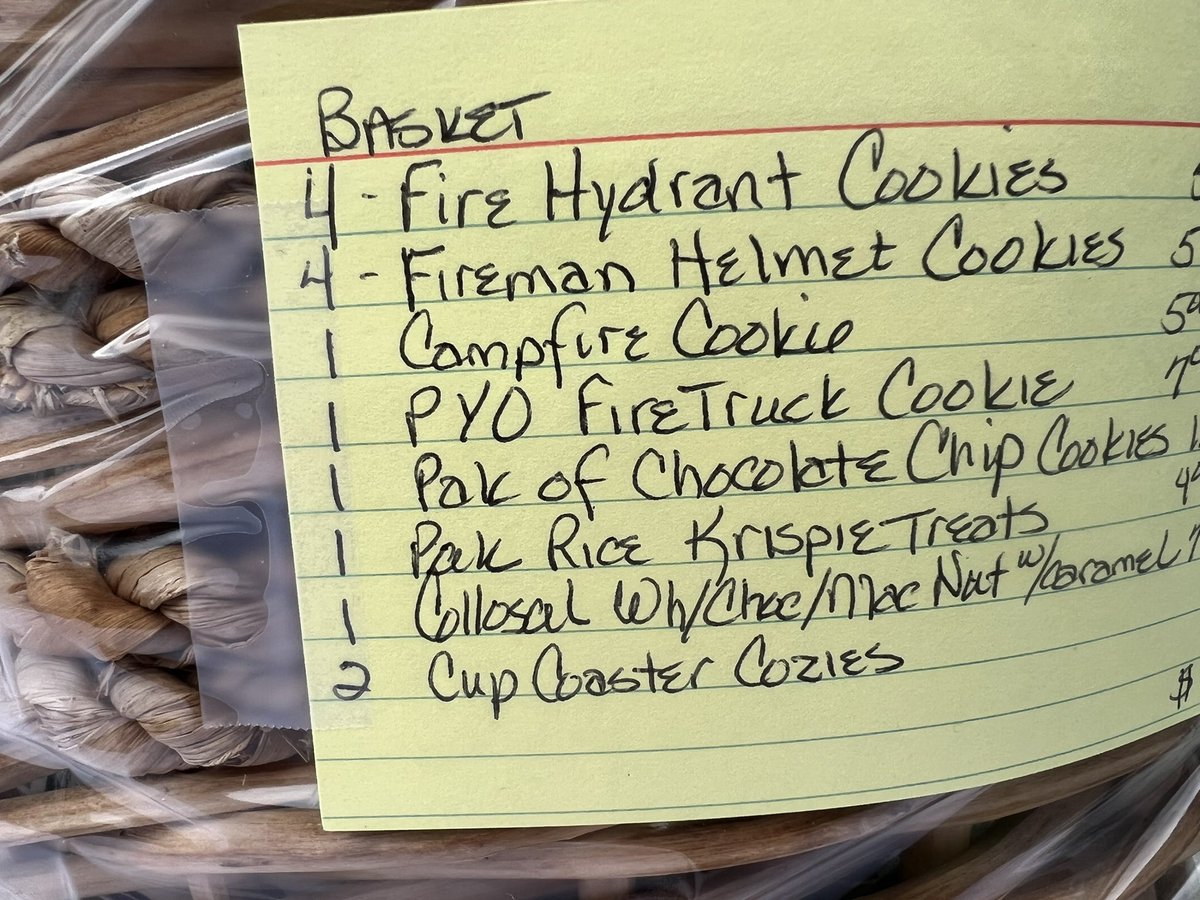 BASKET
4 - Fire Hydrant Cookies
4 - Fireman Helmet Cookies 5
1 Campfire Cookie 5
1 PYO FireTruck Cookie 7
1 Pak of Chocolate Chip Cookies
1 Pak Rice Krispie Treats 4
1 Collosal Wh/Choc/Mac Nut w/caramel
2 Cup Coaster Cozies
$